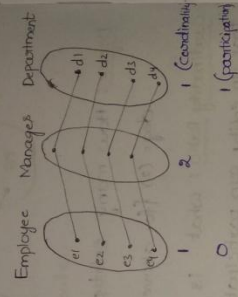 Employee Manages Department
e1 d1
e2 d2
e3 d3
e4 d4
1 2 1 (cardinality
0 1 (participation